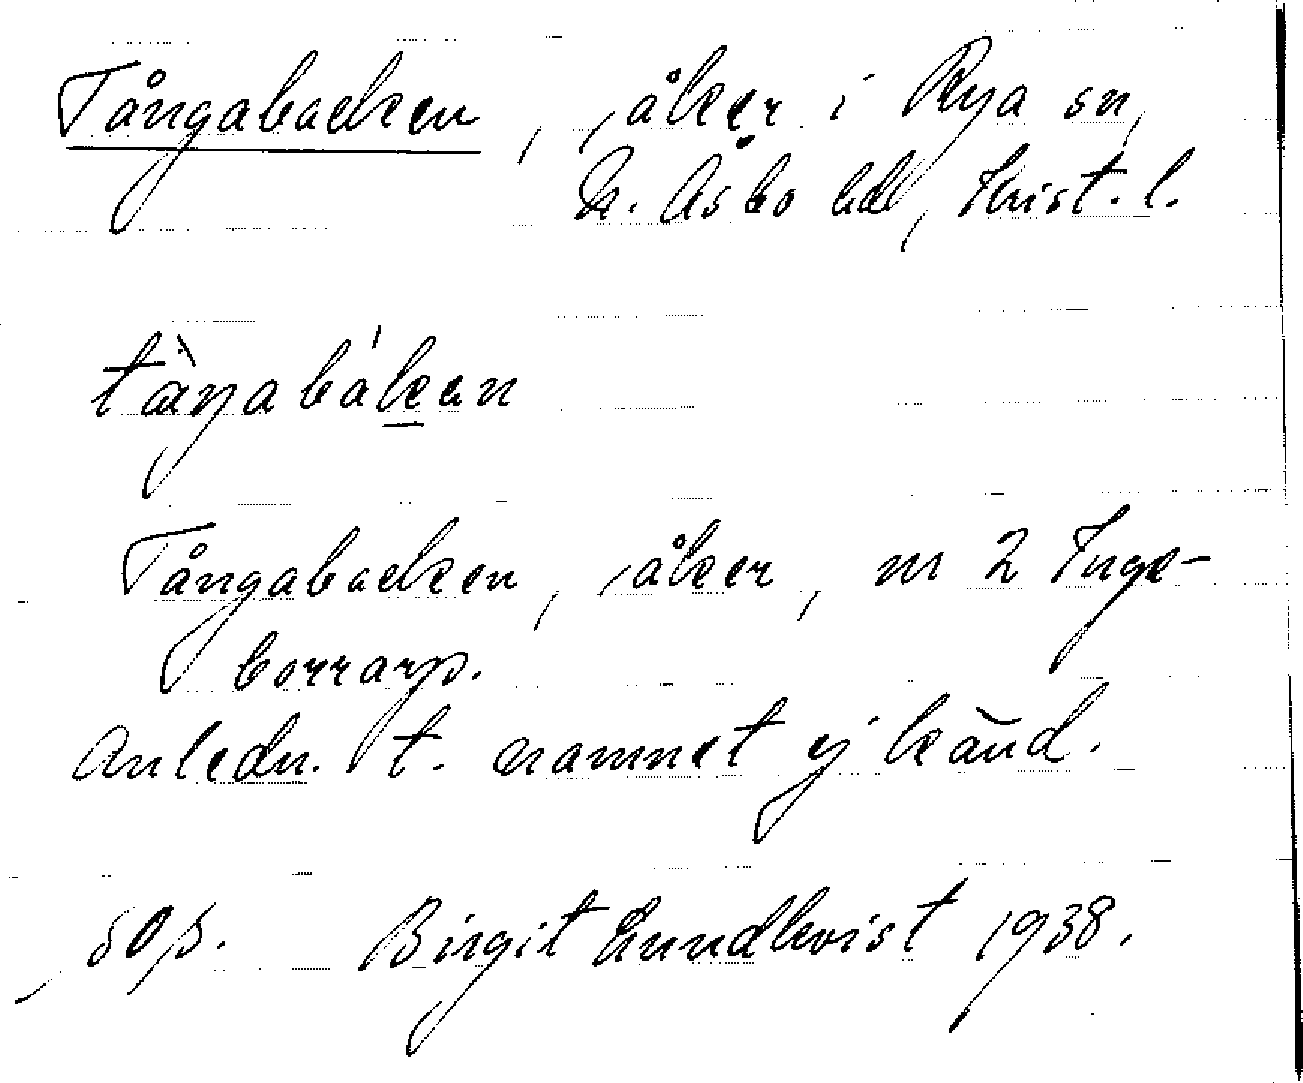 Tångabacken, åker i Rya sn,
N. Åsbo hd, Krist. l.
tàŋabákan
Tångabacken, åker, nr 2 Inge-
borrarp.
Anledn. t. namnet ej känd.
Birgit Lundkvist 1938.